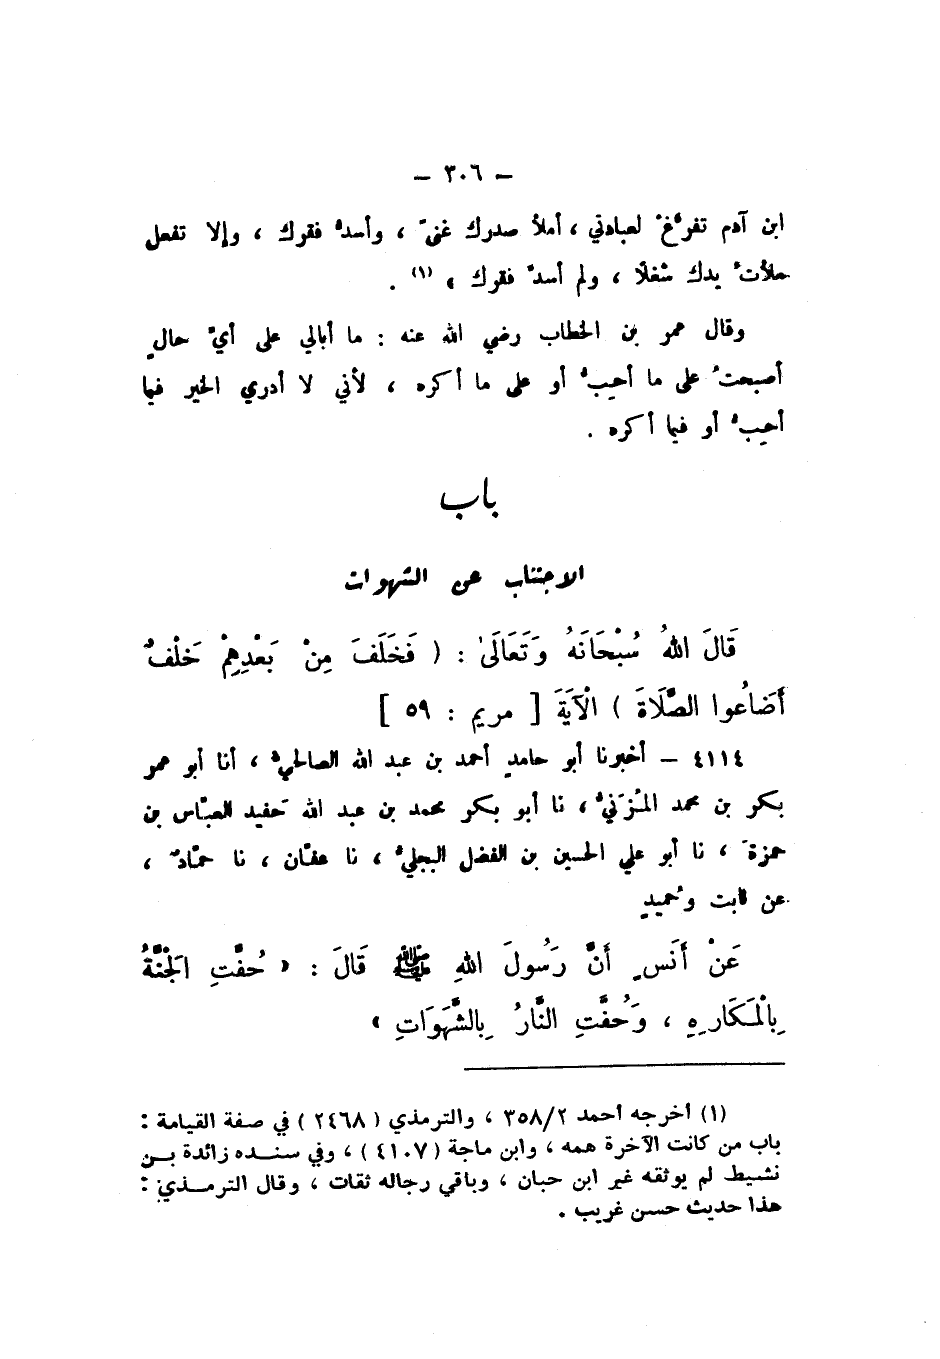 – ٣٠٦ –
ابن آدم تفرَّغْ لعبادتي ، أملأ صدرك غنىً ، وأسدّ فقرك ، وإلا تفعل
ملأتُ يدك شغلًا ، ولم أسدّ فقرك » (١) .
وقال عمر بن الخطاب رضي الله عنه : ما أبالي على أيّ حالٍ
أصبحتُ على ما أحِبُّ أو على ما أكره ، لأني لا أدري الخير فيما
أحِبُّ أو فيما أكره .
باب
الاجتناب عن الشهوات
قَالَ اللهُ سُبْحَانَهُ وَتَعَالَىٰ : ( فَخَلَفَ مِنْ بَعْدِهِمْ خَلْفٌ
أَضَاعُوا الصَّلَاةَ ) الْآيَةَ [ مريم : ٥٩ ]
٤١١٤ – أخبرنا أبو حامدٍ أحمد بن عبد الله الصالحيُّ ، أنا أبو عمر
بكر بن محمد المُزَنيُّ ، نا أبو بكر محمد بن عبد الله حَفيد العبّاس بن
حمزةَ ، نا أبو علي الحسين بن الفضل البجليُّ ، نا عفّان ، نا حمّادٌ ،
عن ثابت وحُميدٍ
عَنْ أَنَسٍ أَنَّ رَسُولَ اللهِ ﷺ قَالَ : « حُفَّتِ الْجَنَّةُ
بِالْمَكَارِهِ ، وَحُفَّتِ النَّارُ بِالشَّهَوَاتِ »
(١) أخرجه أحمد ٣٥٨/٢ ، والترمذي ( ٢٤٦٨ ) في صفة القيامة :
باب من كانت الآخرة همه ، وابن ماجة ( ٤١٠٧ ) ، وفي سنده زائدة بن
نشيط لم يوثقه غير ابن حبان ، وباقي رجاله ثقات ، وقال الترمذي :
هذا حديث حسن غريب .